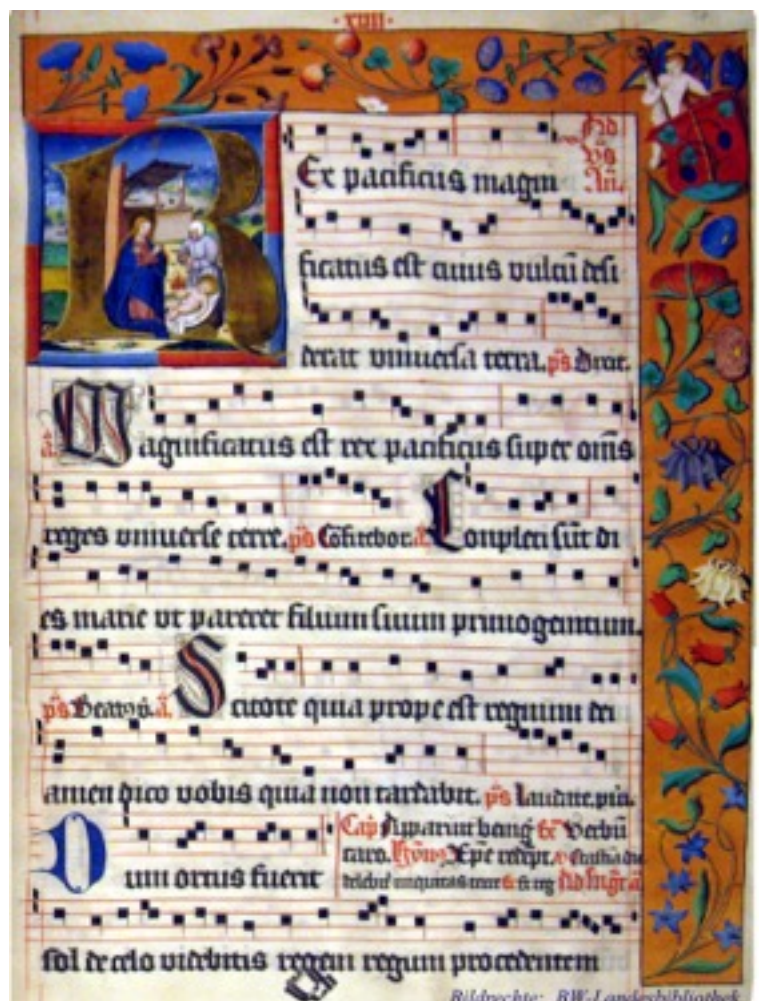 ·xviii·
Rex pacificus magni
ficatus est cuius vultū desi
derat vniuersa terra. ps Dixit.
a. Magnificatus est rex pacificus super om̄s
reges vniuerse terre. ps Cōfitebor. a. Conpleti sūt di
es marie vt pareret filium suum primogenitum.
ps Beatus v. a. Scitote quia prope est regnum dei
amen dico vobis quia non tardabit. ps Laudate. pu.
Dum ortus fuerit
Cap Apparuit benig Rx Verbū
caro.
sol de celo videbitis regem regum procedentem
Bildrechte: BW-Landesbibliothek